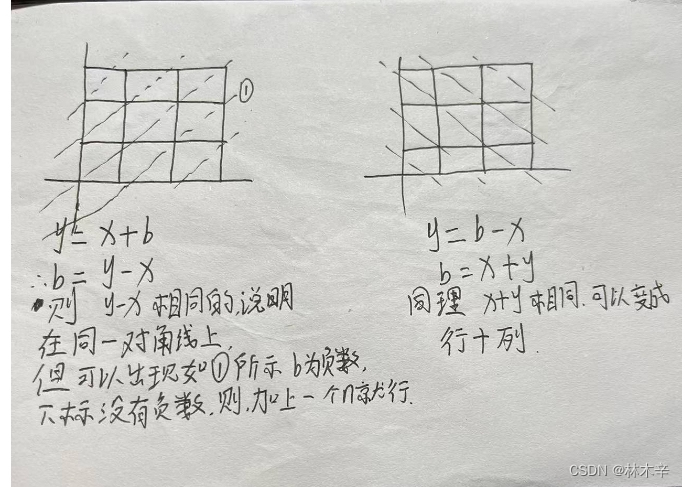 ①
y = x + b
∴ b = y - x
则 y-x 相同的,说明
在同一对角线上,
但 可以出现如①所示 b为负数,
下标没有负数,则,加上一个n就行.
y = b - x
b = x + y
同理 x+y 相同,可以变成
行+列.
CSDN @林木辛